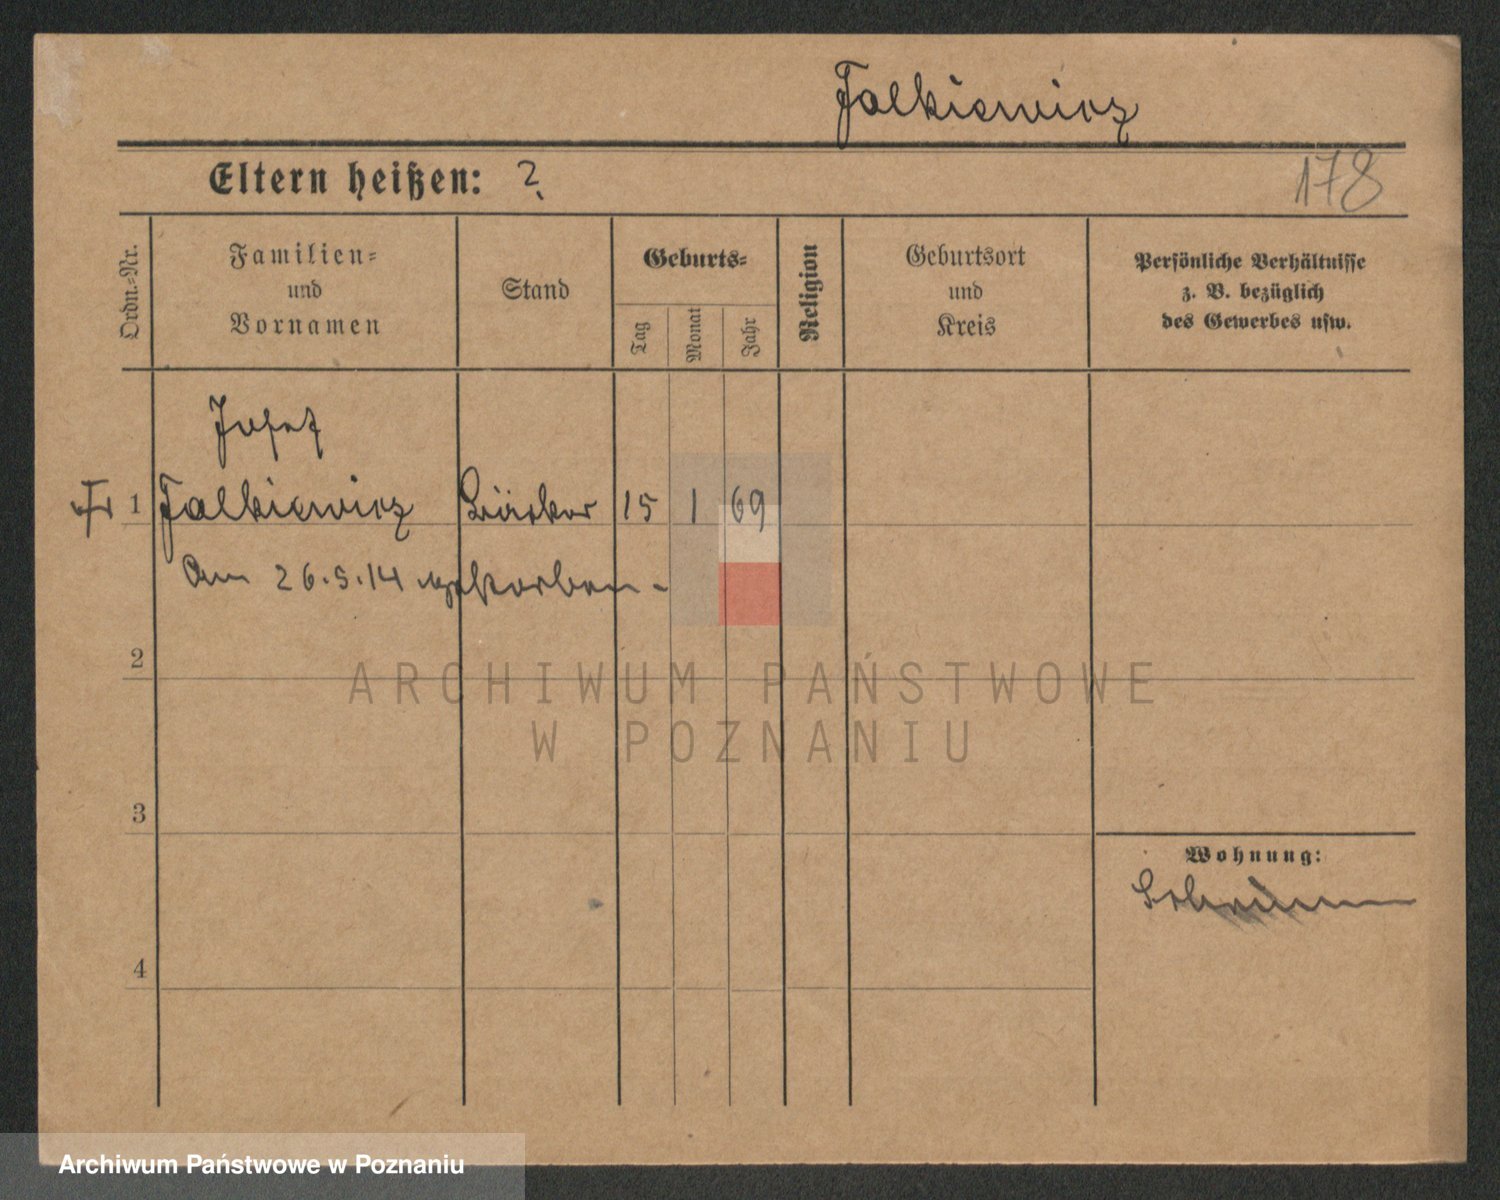 Falkiewicz
Eltern heißen: ?
178
Ordn.=Nr.
Familien=
und
Vornamen
Stand
Geburts=
Tag
Monat
Jahr
Religion
Geburtsort
und
Kreis
Persönliche Verhältnisse
z. B. bezüglich
des Gewerbes usw.
Josef
1 Falkiewicz Bäcker 15 1 69
Am 26.5.14 verstorben -
2
ARCHIWUM PAŃSTWOWE
W POZNANIU
3
Wohnung:
4
Archiwum Państwowe w Poznaniu